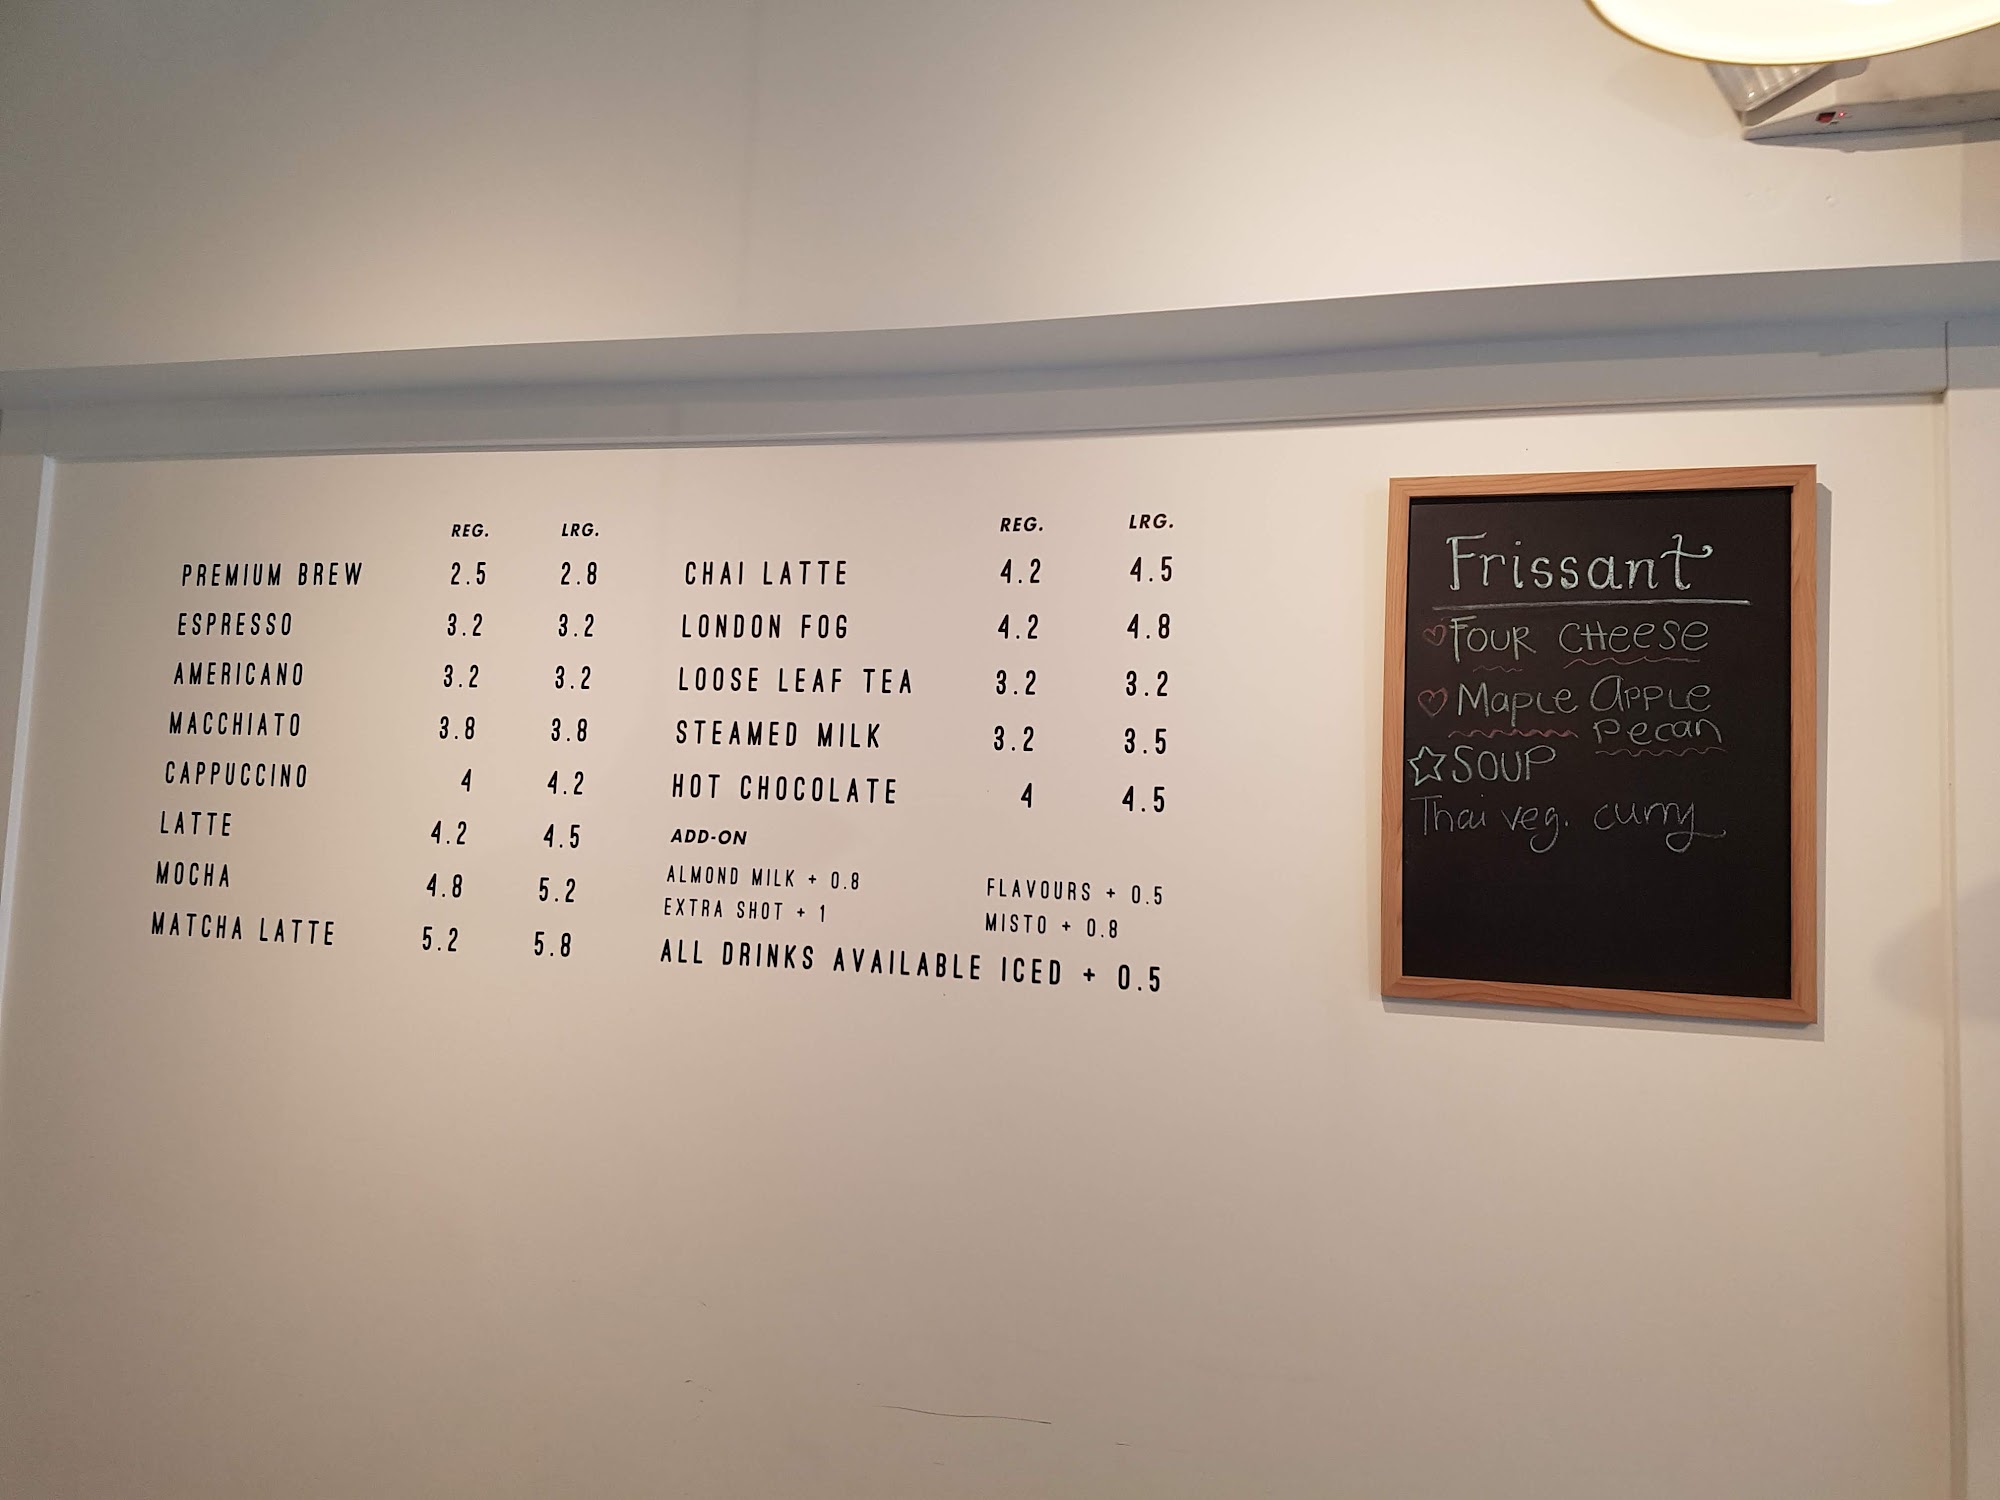 REG. LRG.
PREMIUM BREW 2.5 2.8
ESPRESSO 3.2 3.2
AMERICANO 3.2 3.2
MACCHIATO 3.8 3.8
CAPPUCCINO 4 4.2
LATTE 4.2 4.5
MOCHA 4.8 5.2
MATCHA LATTE 5.2 5.8
REG. LRG.
CHAI LATTE 4.2 4.5
LONDON FOG 4.2 4.8
LOOSE LEAF TEA 3.2 3.2
STEAMED MILK 3.2 3.5
HOT CHOCOLATE 4 4.5
ADD-ON
ALMOND MILK + 0.8 FLAVOURS + 0.5
EXTRA SHOT + 1 MISTO + 0.8
ALL DRINKS AVAILABLE ICED + 0.5
Frissant
FOUR CHeese
Maple Apple
Pecan
SOUP
Thai veg. curry